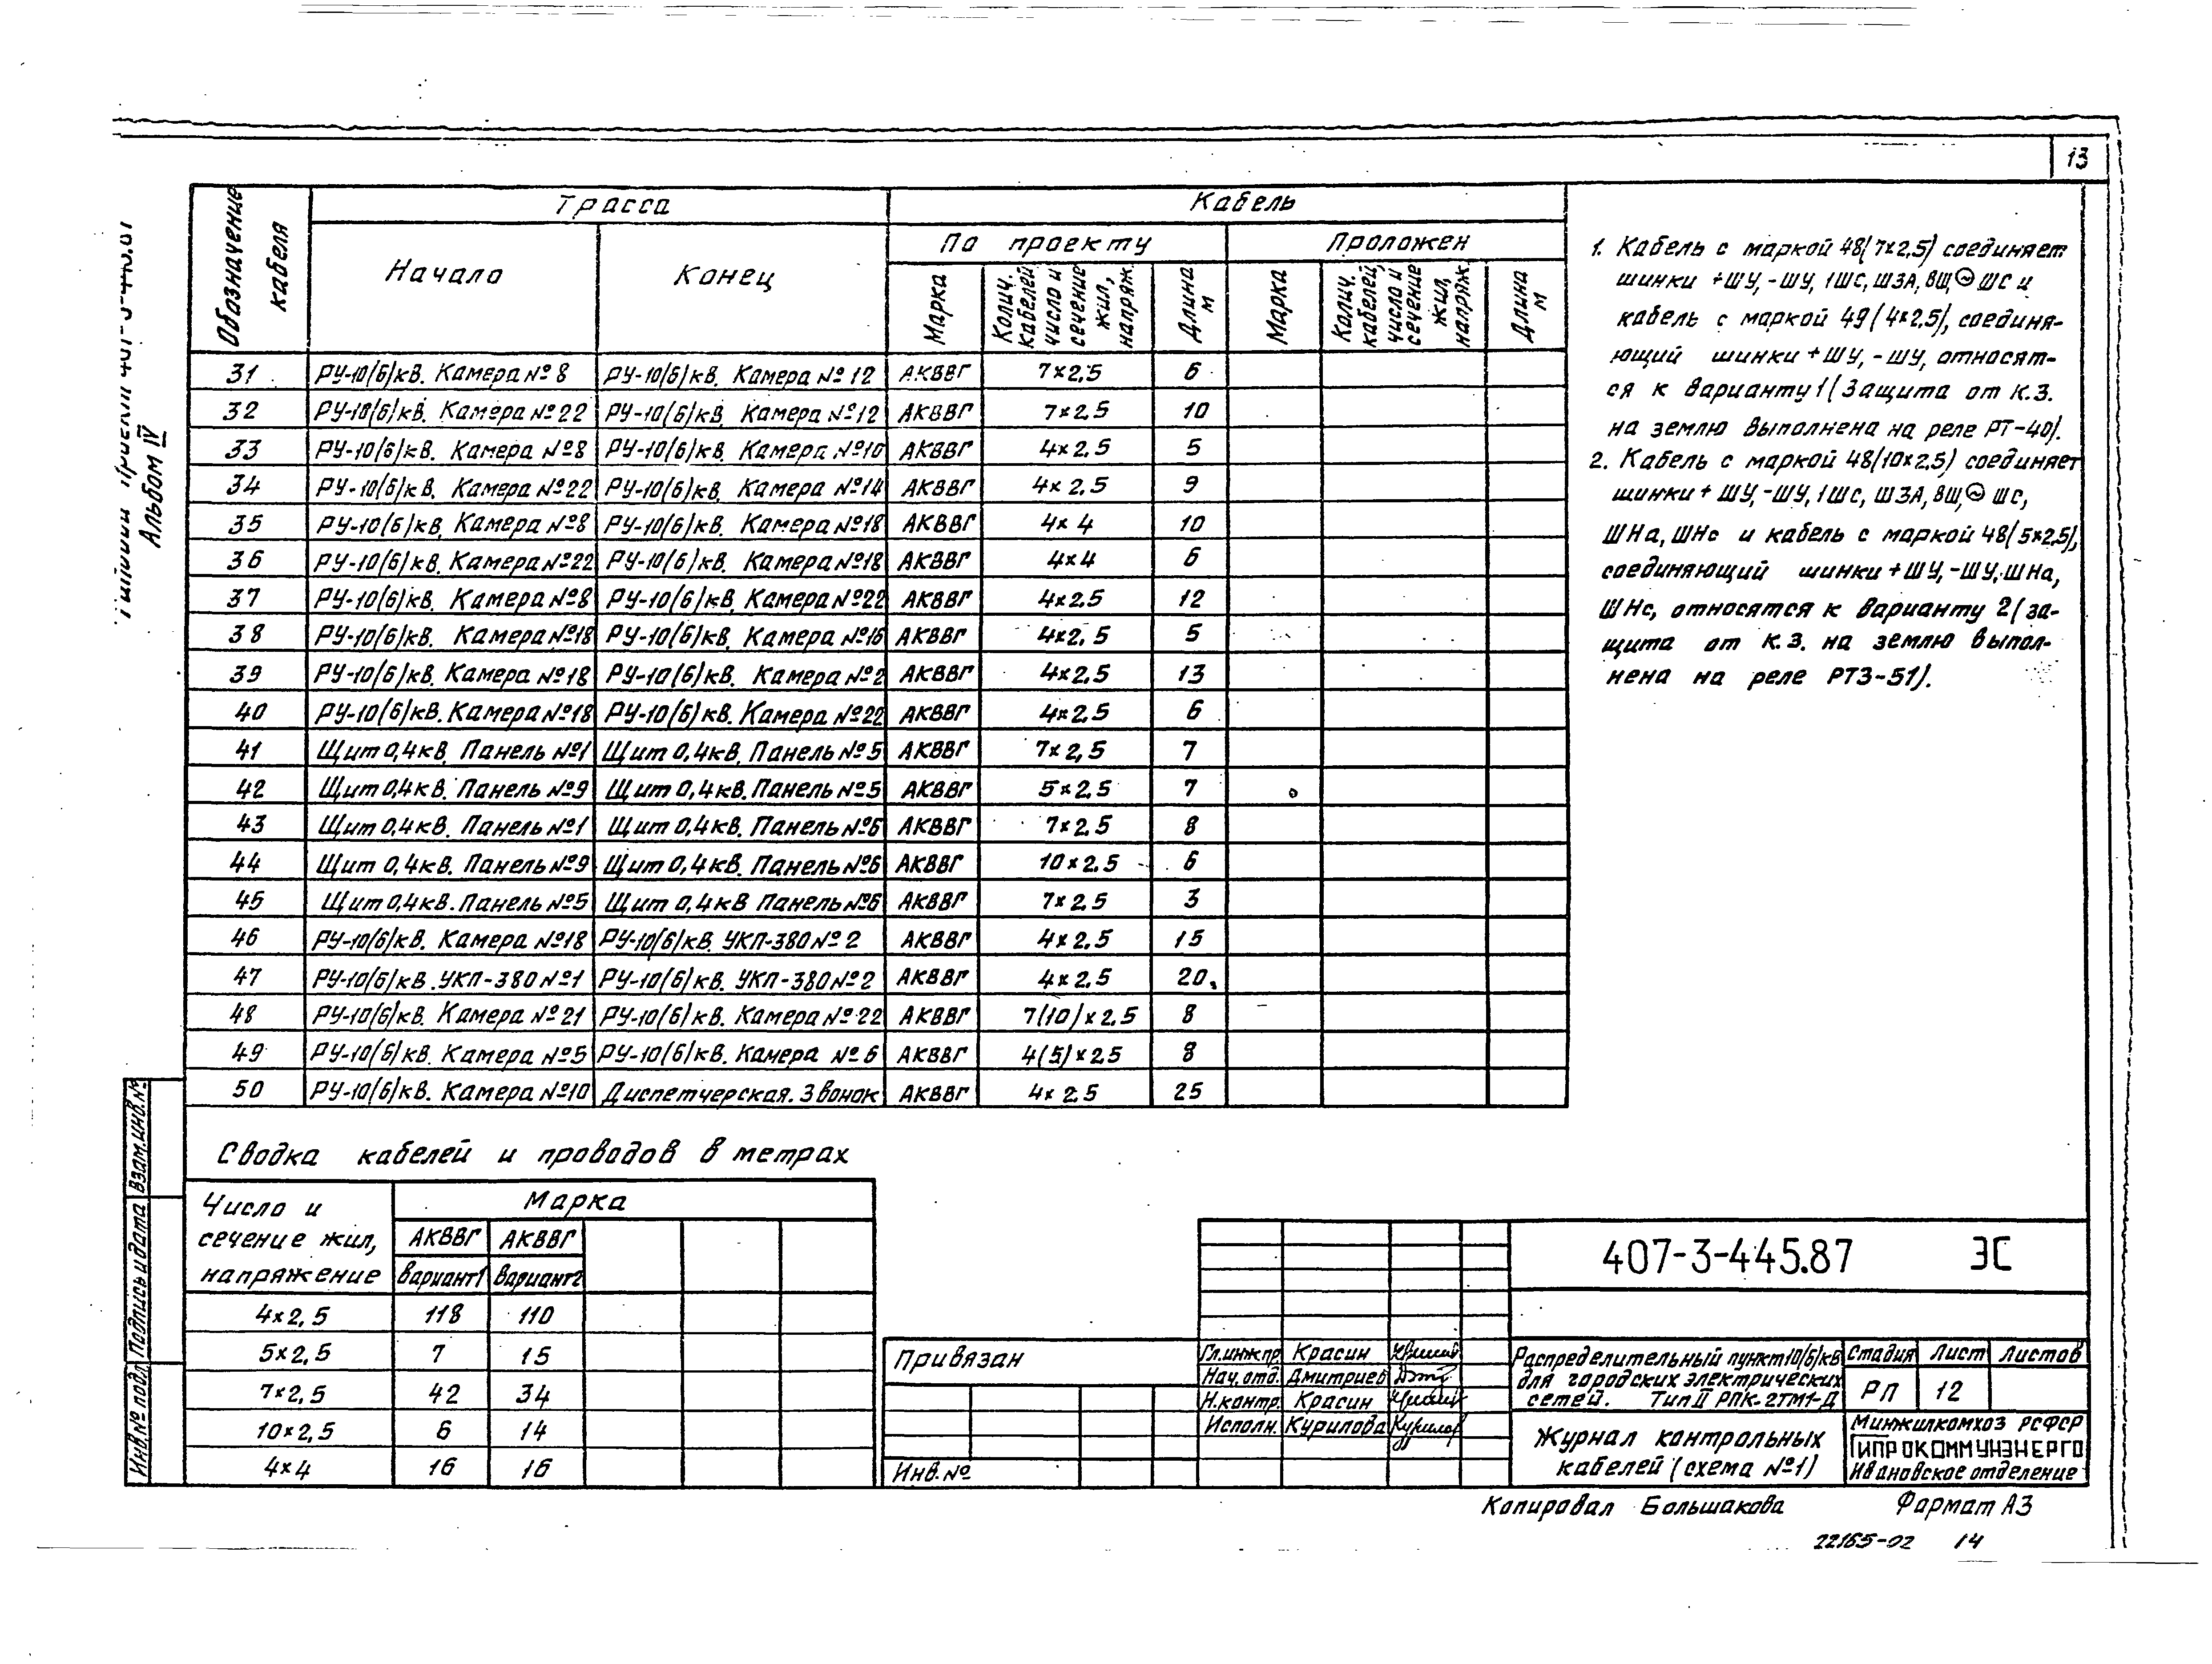 13
Типовой проект 407-3-445.87
Альбом IV
Обозначение кабеля
Трасса
Кабель
Начало
Конец
По проекту
Проложен
Марка
Колич. кабелей, число и сечение жил, напряж.
Длина м
Марка
Колич. кабелей, число и сечение жил, напряж.
Длина м
31 РУ-10(6)кВ. Камера №8 РУ-10(6)кВ. Камера №12 АКВВГ 7×2,5 6
32 РУ-10(6)кВ. Камера №22 РУ-10(6)кВ. Камера №12 АКВВГ 7×2.5 10
33 РУ-10(6)кВ. Камера №8 РУ-10(6)кВ. Камера №10 АКВВГ 4×2.5 5
34 РУ-10(6)кВ. Камера №22 РУ-10(6)кВ. Камера №14 АКВВГ 4×2.5 9
35 РУ-10(6)кВ. Камера №8 РУ-10(6)кВ. Камера №18 АКВВГ 4×4 10
36 РУ-10(6)кВ. Камера №22 РУ-10(6)кВ. Камера №18 АКВВГ 4×4 6
37 РУ-10(6)кВ. Камера №8 РУ-10(6)кВ. Камера №22 АКВВГ 4×2.5 12
38 РУ-10(6)кВ. Камера №18 РУ-10(6)кВ. Камера №16 АКВВГ 4×2.5 5
39 РУ-10(6)кВ. Камера №18 РУ-10(6)кВ. Камера №2 АКВВГ 4×2.5 13
40 РУ-10(6)кВ. Камера №18 РУ-10(6)кВ. Камера №22 АКВВГ 4×2.5 6
41 Щит 0,4кВ. Панель №1 Щит 0,4кВ. Панель №5 АКВВГ 7×2,5 7
42 Щит 0,4кВ. Панель №9 Щит 0,4кВ. Панель №5 АКВВГ 5×2.5 7
43 Щит 0,4кВ. Панель №1 Щит 0,4кВ. Панель №6 АКВВГ 7×2.5 8
44 Щит 0,4кВ. Панель №9 Щит 0,4кВ. Панель №6 АКВВГ 10×2.5 6
45 Щит 0,4кВ. Панель №5 Щит 0,4кВ Панель №6 АКВВГ 7×2.5 3
46 РУ-10(6)кВ. Камера №18 РУ-10(6)кВ. УКП-380 №2 АКВВГ 4×2.5 15
47 РУ-10(6)кВ. УКП-380 №1 РУ-10(6)кВ. УКП-380 №2 АКВВГ 4×2.5 20
48 РУ-10(6)кВ. Камера №21 РУ-10(6)кВ. Камера №22 АКВВГ 7(10)×2.5 8
49 РУ-10(6)кВ. Камера №5 РУ-10(6)кВ. Камера №6 АКВВГ 4(5)×2.5 8
50 РУ-10(6)кВ. Камера №10 Диспетчерская. Звонок АКВВГ 4×2.5 25
1. Кабель с маркой 48(7×2,5) соединяет
шинки +ШУ, -ШУ, 1ШС, ШЗА, ВЩ, ⊝ ШС и
кабель с маркой 49(4×2.5), соединя-
ющий шинки +ШУ, -ШУ, относят-
ся к варианту 1 (Защита от К.З.
на землю выполнена на реле РТ-40).
2. Кабель с маркой 48(10×2.5) соединяет
шинки +ШУ, -ШУ, 1ШС, ШЗА, ВЩ, ⊝ ШС,
ШНа, ШНс и кабель с маркой 48(5×2.5),
соединяющий шинки +ШУ, -ШУ, ШНа,
ШНс, относятся к варианту 2 (за-
щита от К.З. на землю выпол-
нена на реле РТЗ-51).
Сводка кабелей и проводов в метрах
Число и сечение жил, напряжение
Марка
АКВВГ АКВВГ
Вариант1 Вариант2
4×2,5 118 110
5×2,5 7 15
7×2,5 42 34
10×2,5 6 14
4×4 16 16
Взам.инв.№
Подпись и дата
Инв.№ подл.
Привязан
Инв.№
407-3-445.87 ЭС
Гл.инж.пр. Красин
Нач.отд. Дмитриев
Н.контр. Красин
Исполн. Курилова
Распределительный пункт 10(6)кВ
для городских электрических
сетей. Тип II РПК-2ТМ1-Д
Стадия Лист Листов
РП 12
Журнал контрольных
кабелей (схема №1)
Минжилкомхоз РСФСР
ГИПРОКОММУНЭНЕРГО
Ивановское отделение
Копировал Большакова Формат А3
22165-02 14